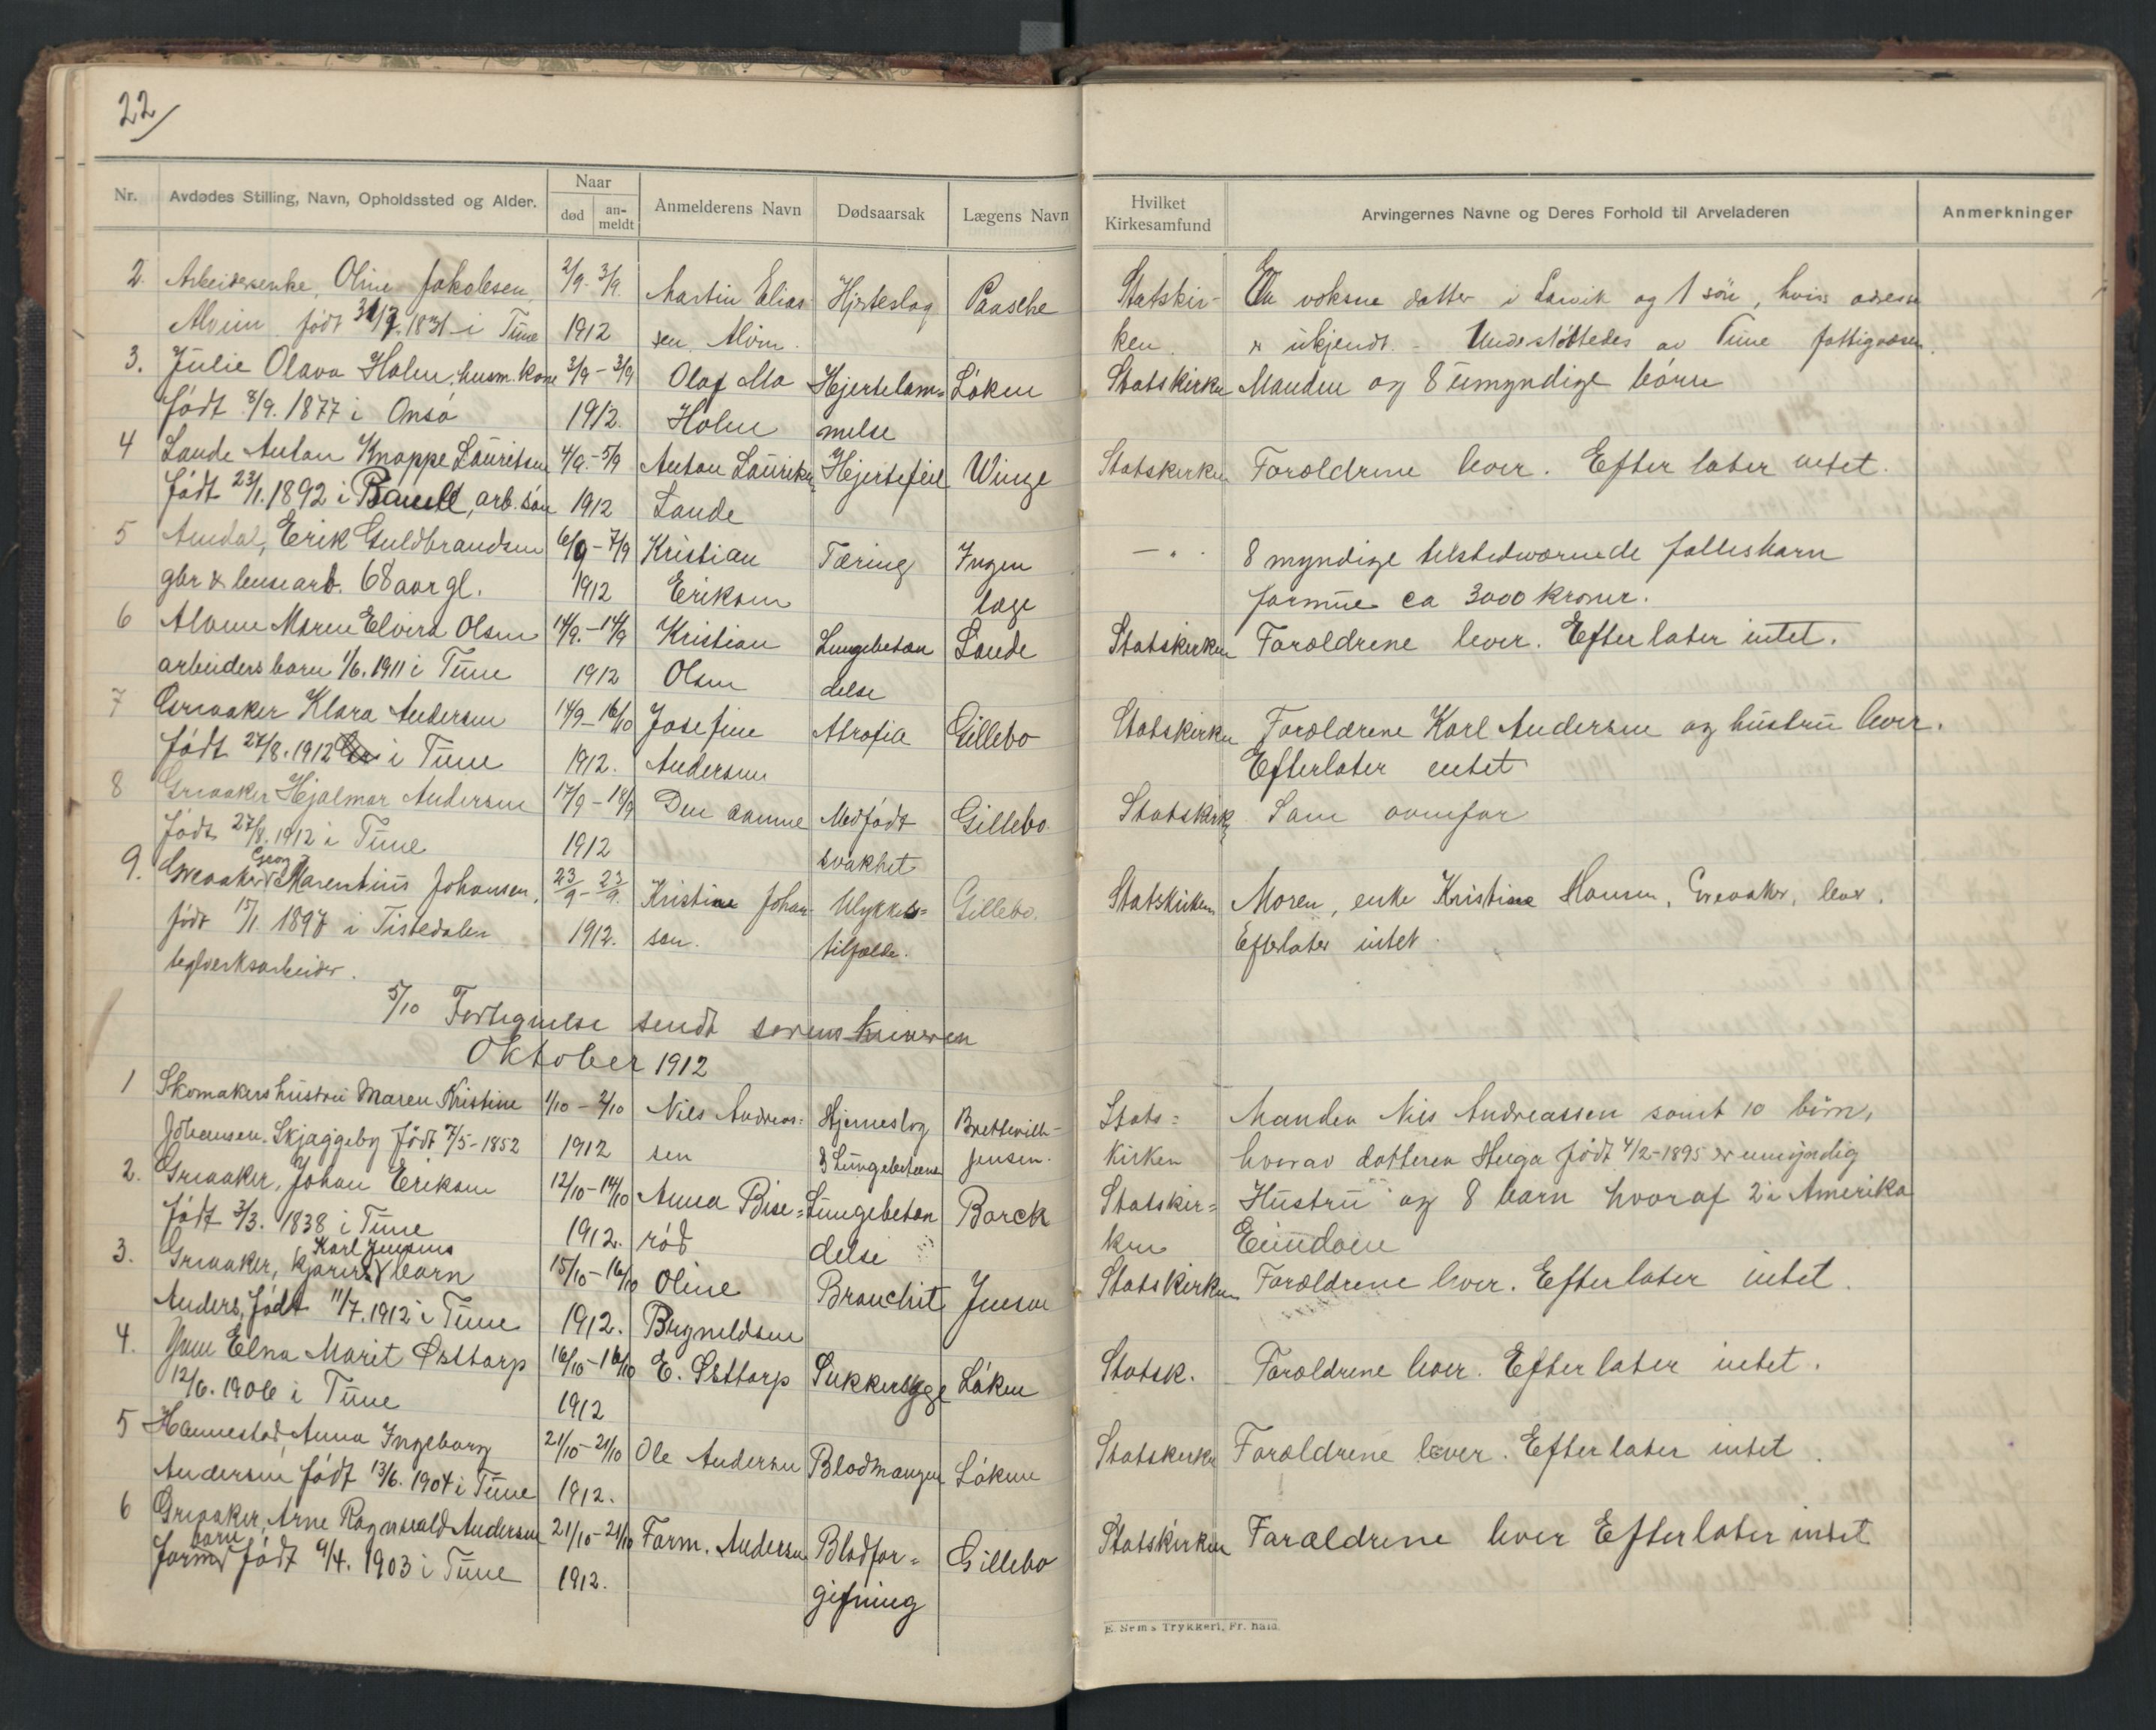 22
Nr. Avdødes Stilling, Navn, Opholdssted og Alder. Naar død an-meldt Anmelderens Navn Dødsaarsak Lægens Navn Hvilket Kirkesamfund Arvingernes Navne og Deres Forhold til Arveladeren Anmerkninger
2. Arbeidersenke, Oline Jakobsen, 2/9 - 3/9. Martin Elias Hjerteslag Paasche Statskir- En voksne datter i Larvik og 1 sön, hvis adresse
Alvim født 1831 i Tune 1912 sen Alvim. ken er ukjendt. - Understøttedes av Tune fattigvæsen.
3. Julie Olava Holm, husm. kone 2/9 - 3/9 Olaf Ma Hjertelam= Löken Statskirken Manden og 8 umyndige börn
født 8/9. 1877 i Onsö 1912. Holm melse
4 Lande Anton Knappe Lauritsen 4/9. - 5/9 Anton Lauritsen Hjertefeil Winge Statskirken Forældrene lever. Efterlater intet.
født 23/1. 1892 i, arb. sön 1912 Lande
5 Amdal, Erik Guldbrandsen 6/9 - 7/9 Kristian Tæring Ingen - " - 8 myndige tilstedværende fællesbarn
gbr & lensearb. 68 aar gl. 1912 Eriksen læge formue ca 3000 kroner.
6 Alvim Maren Elvira Olsen 14/9. - 14/9 Kristian Lungebetæn Lande Statskirken Forældrene lever. Efterlater intet.
arbeiders barn 1/6. 1911 i Tune 1912 Olsen delse
7 Greaaker Klara Andersen 14/9 - 16/10 Josefine Atrofia Gillebo Statskirken Forældrene Karl Andersen og hustru lever.
født 27/8. 1912 i Tune 1912. Andersen Efterlater intet
8 Greaaker Hjalmar Andersen 17/9 - 18/9 Den samme Medfødt Gillebo Statskirk Som ovenfor
født 27/8. 1912 i Tune 1912 svakhet
9. Greaaker Georg Marentius Johansen, 23/9 - 23/9. Kristine Johan Ulykkes= Gillebo. Statskirken Moren, enke Kristine Hansen, Greaaker, lever.
født 15/1. 1897 i Tistedalen 1912. sen. tilfælde. Efterlater intet.
teglverksarbeider.
5/10 Fortegnelse sendt sorenskriveren
Oktober 1912
1 Skomakers hustru Maren Kristine 1/10 - 2/10 Niels Andreas= Hjerneslag Brettevill- Stats= Manden Nils Andreassen samt 10 børn,
Johansen. Skjaggeby født 7/5 - 1852 1912 sen & Lungebetænd Jensen. kirken hvorav datteren Huga født 4/2-1895 er umyndig
2. Greaaker, Johan Eriksen 12/10 - 14/10 Anna Bise= Lungebetæn Borck Statskir= Hustru og 8 barn hvoraf 2 i Amerika
født 3/3. 1838 i Tune 1912. röd delse ken Eiendom
3. Greaaker, kjörers Karl Jensens barn 15/10 - 16/10 Oline Bronchit Jensen Statskirken Forældrene lever. Efterlater intet.
Anders, født 11/7. 1912 i Tune 1912. Brynildsen
4. Elna Marit Østtorp 16/10 - 16/10 E. Østtorp Sukkersyge Löken Statsk. Forældrene lever. Efterlater intet.
12/6. 1906 i Tune 1912
5 Hannestad, Anna Ingeborg 21/10 - 21/10 Ole Andersen Blodmangel Löken Statskirken Forældrene lever. Efterlater intet.
Andersen født 13/6. 1904 i Tune 1912.
6 Greaaker, Arne Ragnvald Andersen 21/10 - 21/10 Form. Andersen Blodfor= Gillebo Statskirken Forældrene lever Efterlater intet
barn født 9/4. 1903 i Tune 1912. giftning
E. Sem's Trykkeri, Fr.hald.